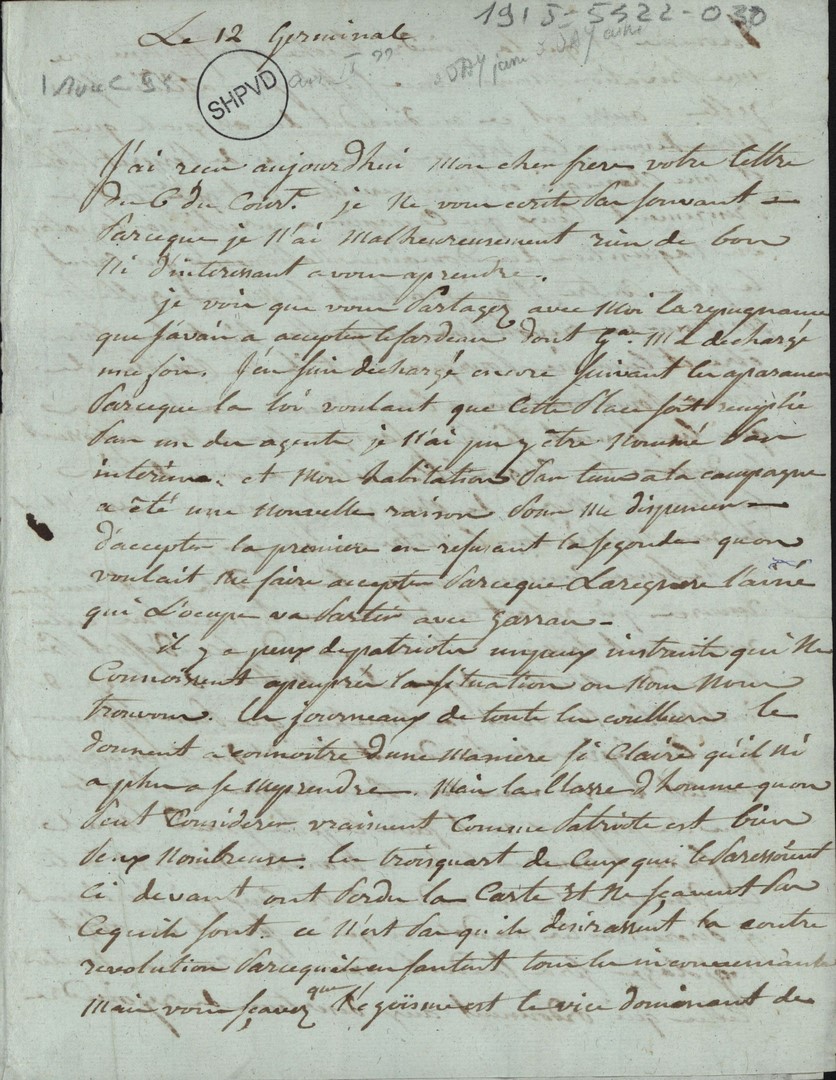 1915-5522-030
Le 12 Germinale
an II
SHPVD
J'ai recu aujourd'hui mon cher frere votre lettre
du 6 du Cour.t je ne vous ecrits pas souvant
parceque je n'ai malheureusement rien de bon
ni d'interessant a vous aprendre.
je vois que vous partagez avec moi la repugnance
que j'avais a accepter le fardeau dont m'a dechargé
une fois. J'en suis dechargé encore suivant les aparances
parceque la loi voulant que cette place fût remplie
par un des agents je n'ai pu y être nommé par
interim. et mon habitation a la campagne
a été une nouvelle raison pour me dispenser
d'accepter la premiere en refusant la segonde quon
voulait me faire accepter parceque Laregnere l'ainé
qui l'ocupe va partir avec Garrau
il y a peux de patriotes un peux instruits qui ne
Connoissent apeuprés la situation ou nous nous
trouvons. les journeaux de toute les couilleurs le
donnent a connoitre d'une maniere si Claire qu'il ni
a plus a se meprendre. Mais la Classe d'homme quon
peut Considerer vraiment comme patriote est bien
peux nombreuse. les troisquart de ceux qui le paressoient
ci devant ont perdu la Carte et ne sçavent pas
Cequils font. ce n'est pas qu'ils desirassent la contre
revolution parcequils en sentent tous les inconveniants
Mais vous sçavez que l'egoïsme est le vice dominant de